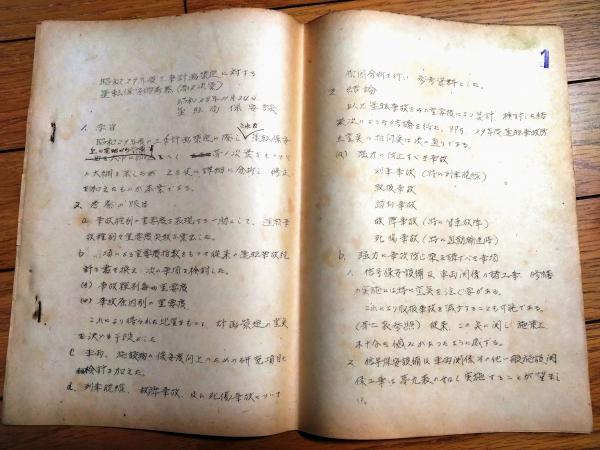 昭和29年度工事計画策定に対する
運転保安的考察(第2次案)
昭和28年11月24日
運転局保安課
1. 序言
昭和29年度の工事計画策定に際し、運転保安
された
第1次案をもつて
大綱を示したが、更に詳細に分析し、修正
を加えたものが本案である。
2. 考察の項目
a. 事故種別の重要度を表現する一助として、運転事
故種別の重要度係数を算出した。
b. 項による重要度指数をもつて従来の運転事故統
計を書き換え、次の事項を検討した。
(イ) 事故種別毎の重要度
(ロ) 事故原因別の重要度
これにより得られた結果をもとに、計画策定の重点
を決める手段とした。
c. 車両、施設関係の保安度向上のための研究項目を
検討に加えた。
d. 列車脱線、故障事故、及び死傷事故について
1
原因分析を行い、参考資料とした。
3. 結論
以上運転事故をその重要度により集計、検討した結
果次のような結論を得た。即ち、29年度運転事故防
止重点の指向点は次の通りである。
a. 強力に防止すべき事故
列車事故(特に列車脱線)
取扱事故
踏切事故
故障事故(特に電車故障)
死傷事故
b. 強力に事故防止策を講ずべき事項
1. 信号保安設備及車両関係の諸工事、修繕
の実施には特に重点を注ぐ要がある。
これにより取扱事故を減少することも可能である。
(第二表参照) 従来、この点に関し施策上
不十分な憾みがあつたように感ずる。
2. 信号保安設備及車両関係その他一般施設関
係工事は第九表の如く実施することが望まし
い。